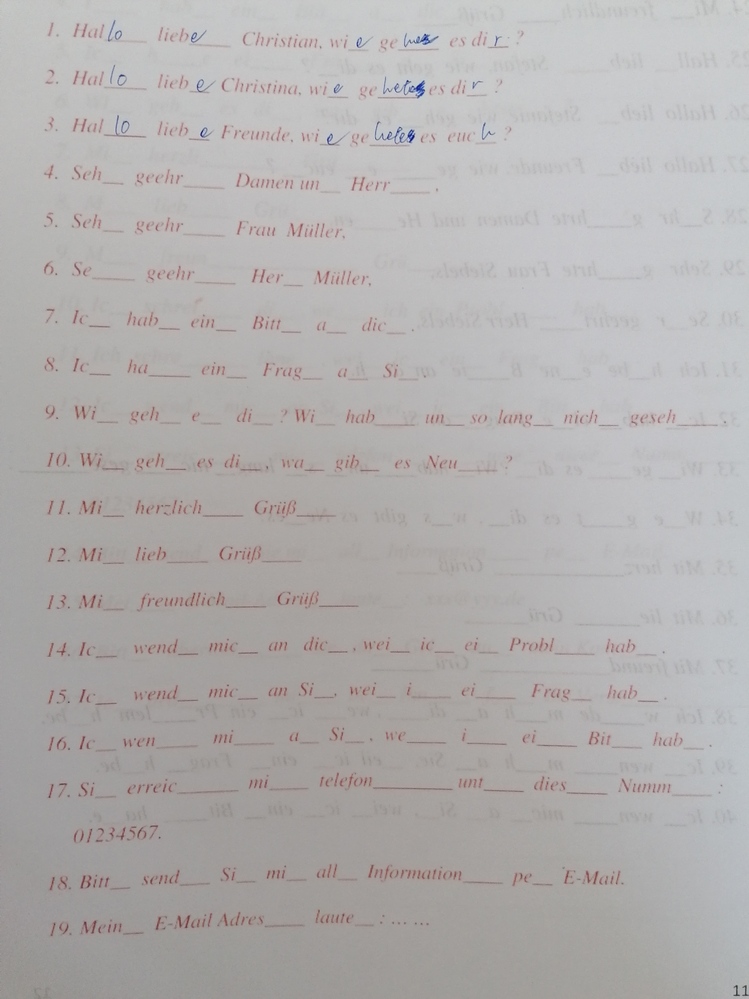 1. Hallo liebe Christian, wie ge es dir ?
2. Hallo liebe Christina, wie ge es dir ?
3. Hallo liebe Freunde, wie ge es euch ?
4. Seh__ geehr____ Damen un__ Herr____ ,
5. Seh__ geehr____ Frau Müller,
6. Se____ geehr____ Her__ Müller,
7. Ic__ hab__ ein__ Bitt__ a__ dic__ .
8. Ic__ ha____ ein__ Frag__ a__ Si__ .
9. Wi__ geh__ e__ di__ ? Wi__ hab____ un__ so lang__ nich__ geseh____ .
10. Wi__ geh__ es di__ , wa__ gib__ es Neu____ ?
11. Mi__ herzlich____ Grüß____
12. Mi__ lieb____ Grüß____
13. Mi__ freundlich____ Grüß____
14. Ic__ wend__ mic__ an dic__ , wei__ ic__ ei__ Probl____ hab__ .
15. Ic__ wend__ mic__ an Si__ , wei__ i____ ei____ Frag__ hab__ .
16. Ic__ wen____ mi____ a__ Si__ , we____ i____ ei____ Bit____ hab__ .
17. Si__ erreic______ mi____ telefon________ unt____ dies____ Numm____ :
01234567.
18. Bitt__ send___ Si__ mi__ all__ Information____ pe__ E-Mail.
19. Mein__ E-Mail Adres____ laute__ : ... ...
11